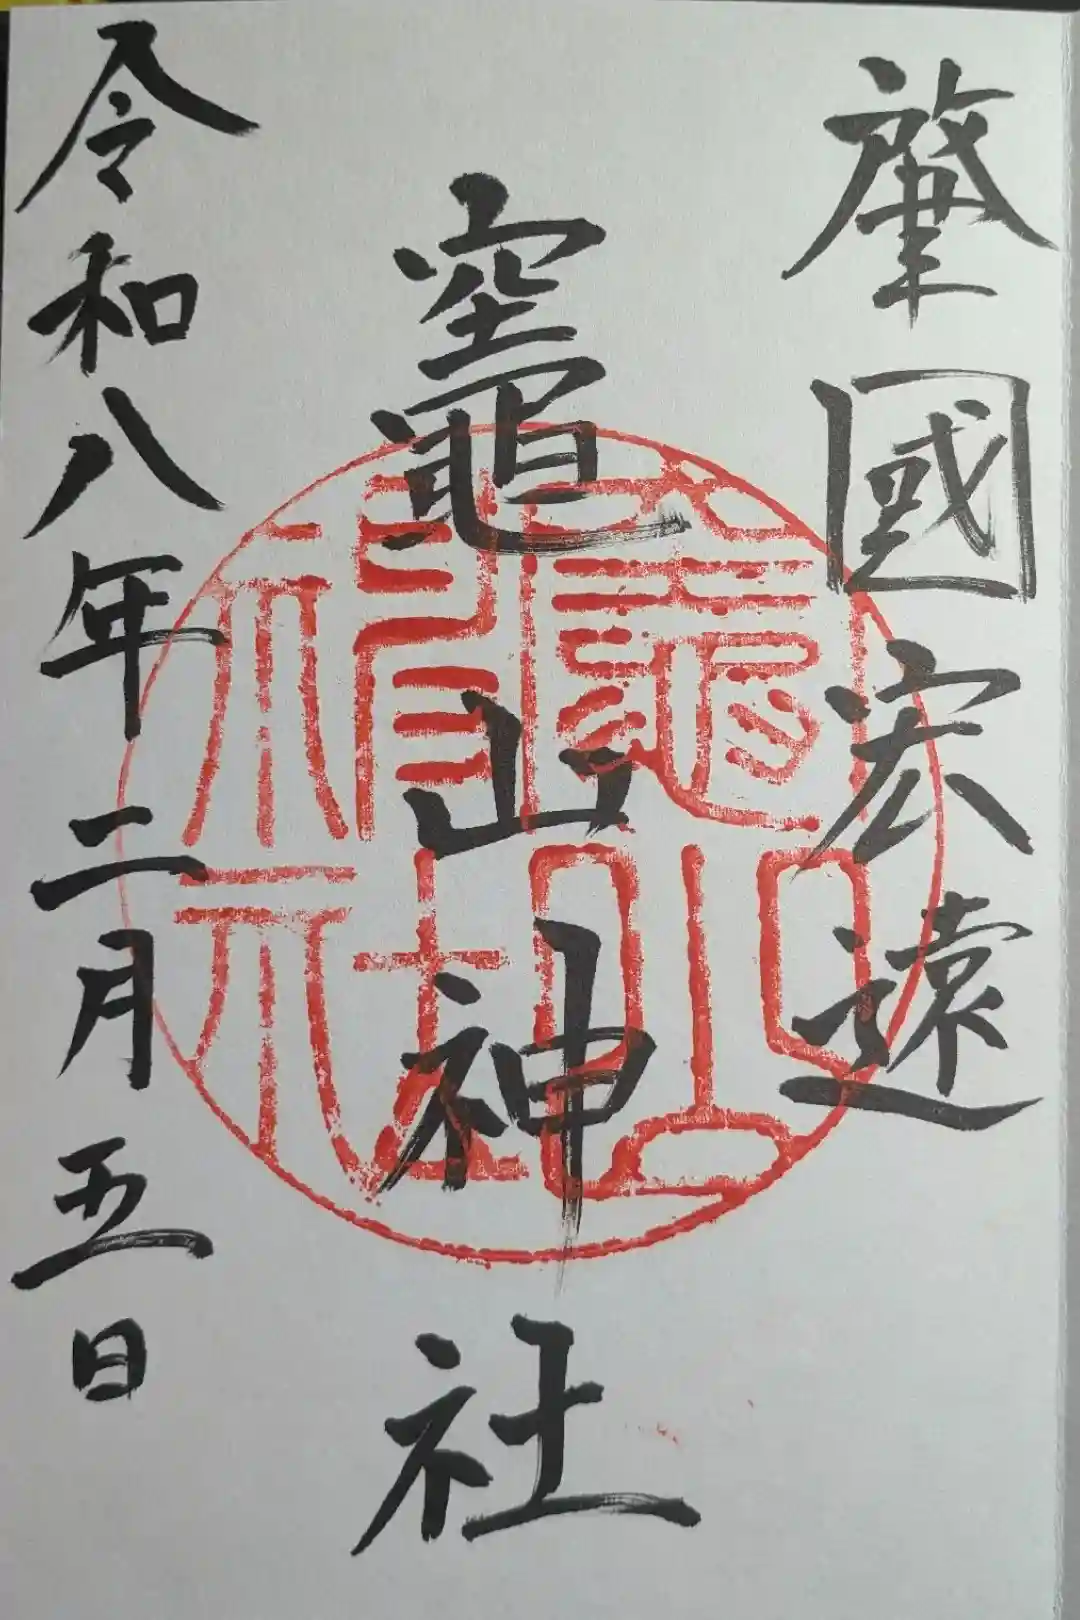 肇國宏遠
竈山神社
竈山神社
令和八年二月五日